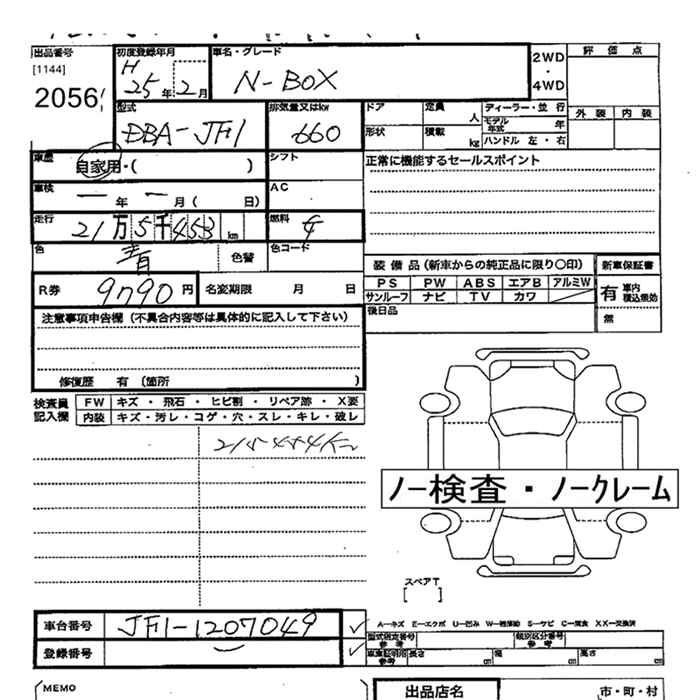 出品番号 初度登録年月 車名・グレード 2WD 評価点
[1144] H 25年2月 N-BOX ・
2056 4WD
型式 排気量又はkw ドア 定員 人 ディーラー・並行 外装 内装
DBA-JF1 660 モデル年式 年
形状 積載 kg ハンドル 左・右
車歴 自家用・( ) シフト 正常に機能するセールスポイント
車検 ー年ー月( 日) AC
走行 21万5千453km 燃料 G
色 青 色替 色コード
装備品(新車からの純正品に限り〇印) 新車保証書
R券 9790円 名変期限 月 日 PS PW ABS エアB アルミW 有 車内積込無効
サンルーフ ナビ TV カワ
注意事項申告欄(不具合内容等は具体的に記入して下さい) 後日品 無
修復歴 有(箇所 )
検査員記入欄 FW キズ・飛石・ヒビ割・リペア跡・X要
内装 キズ・汚レ・コゲ・穴・スレ・キレ・破レ
ノー検査・ノークレーム
スペアT
[ ]
A―キズ E―エクボ U―凹み
車台番号 JF1-1207049 型式指定番号 参考 類別区分番号 参考
登録番号 車庫証明用 参考 長さ cm 幅 cm 高さ cm
MEMO 出品店名 市・町・村